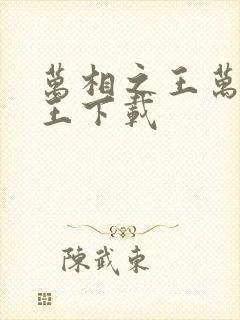 萬相之王萬
王下載
陳武東